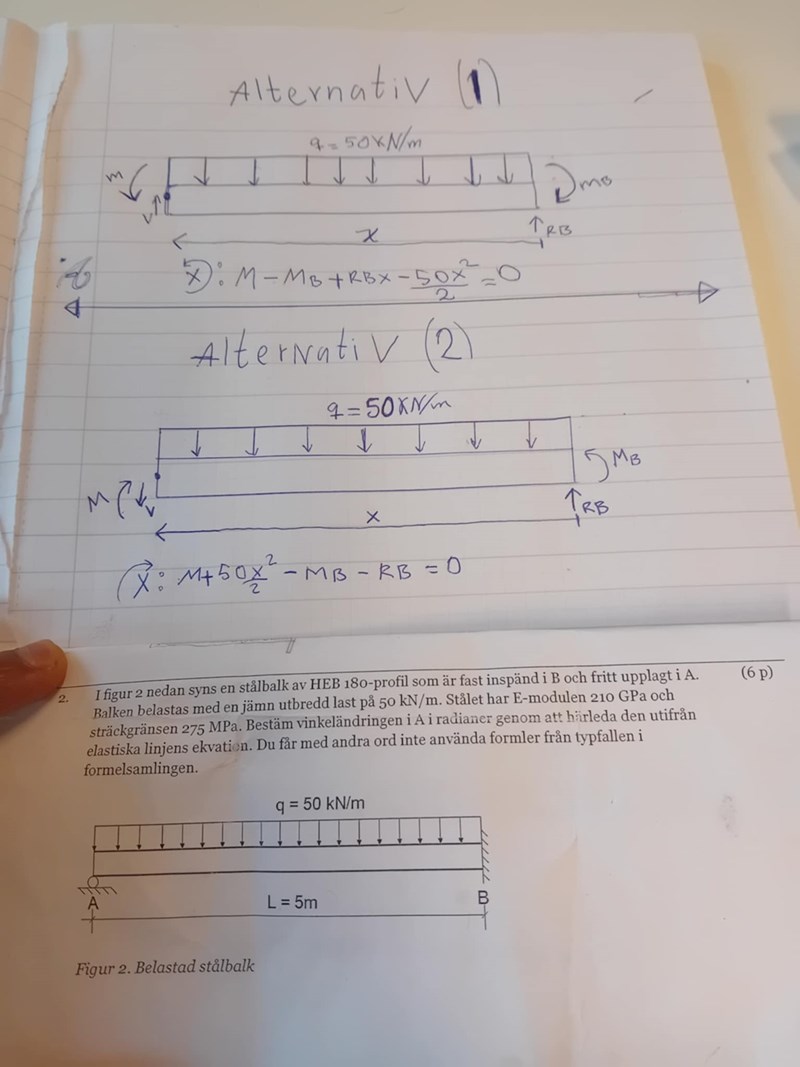 Alternativ (1)
q = 50 kN/m
M
V
MB
RB
x
x: M - MB + RBx - 50x²/2 = 0
Alternativ (2)
q = 50 KN/m
M
V
MB
RB
x
x: M + 50x²/2 - MB - RB = 0
2. I figur 2 nedan syns en stålbalk av HEB 180-profil som är fast inspänd i B och fritt upplagt i A. (6 p)
Balken belastas med en jämn utbredd last på 50 kN/m. Stålet har E-modulen 210 GPa och
sträckgränsen 275 MPa. Bestäm vinkeländringen i A i radianer genom att härleda den utifrån
elastiska linjens ekvation. Du får med andra ord inte använda formler från typfallen i
formelsamlingen.
q = 50 kN/m
A
L = 5m
B
Figur 2. Belastad stålbalk